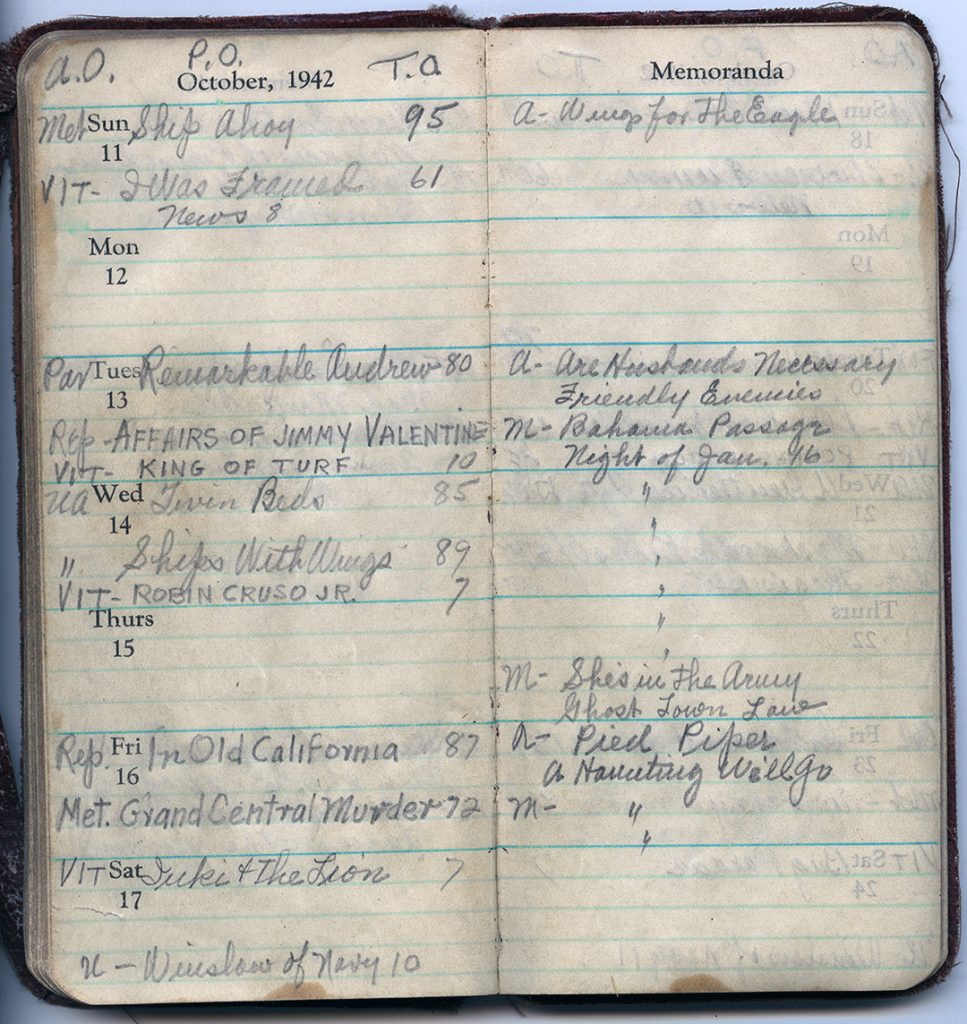 A.O. P.O. T.O.
October, 1942
Met Sun Ship Ahoy 95
11
VIT- I Was Framed 61
News 8
Mon
12
Par Tues Remarkable Andrew-80
13
Rep-AFFAIRS OF JIMMY VALENTINE
VIT- KING OF TURF 10
UA Wed Twin Beds 85
14
" Ships With Wings 89
VIT- ROBIN CRUSO JR. 7
Thurs
15
Rep. Fri In Old California 87
16
Met. Grand Central Murder 72
VIT Sat Inki & the Lion 7
17
U - Winslow of Navy 10
Memoranda
A- Wings for The Eagle
A- Are Husbands Necessary
Friendly Enemies
M- Bahama Passage
Night of Jan. 16
"
"
"
"
"
"
M- She's in The Army
Ghost Town Law
A- Pied Piper
A Haunting We'll Go
M- "
"